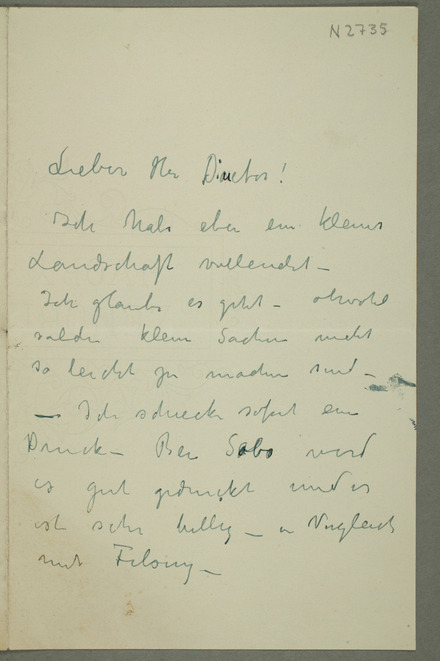 N2735
Lieber Herr Director!
Ich habe eben ein kleine
Landschaft vollendet –
Ich glaube es geht – obwohl
solche kleine Sachen nicht
so leicht zu machen sind –
– Ich schicke sofort ein
Druck – Bei Sabo wird
es gut gedruckt und es
ist sehr billig – in Vergleich
mit